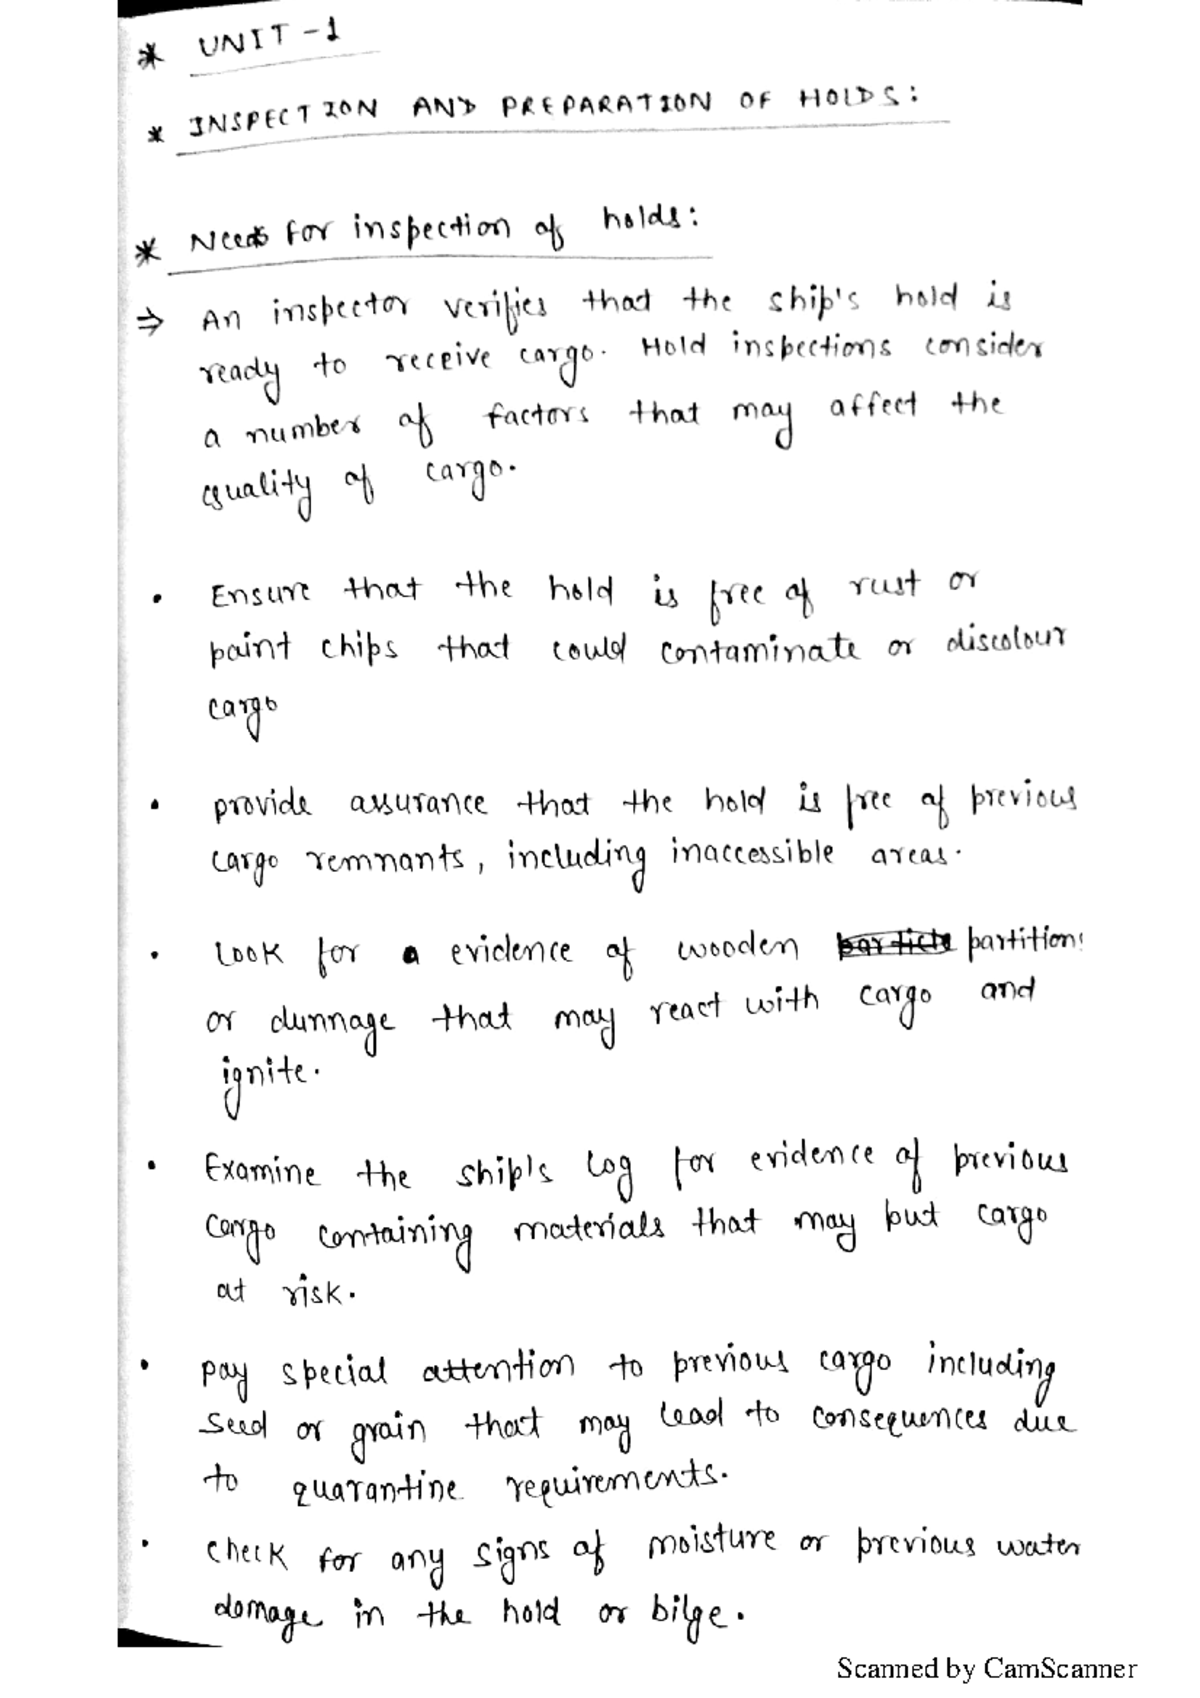 * UNIT - 1
* INSPECTION AND PREPARATION OF HOLDS:
* Needs for inspection of holds:
⇒ An inspector verifies that the ship's hold is
ready to receive cargo. Hold inspections consider
a number of factors that may affect the
quality of cargo.
• Ensure that the hold is free of rust or
paint chips that could contaminate or discolour
cargo
• provide assurance that the hold is free of previous
cargo remnants, including inaccessible areas.
• Look for a evidence of wooden partitions
or dunnage that may react with cargo and
ignite.
• Examine the ship's log for evidence of previous
cargo containing materials that may but cargo
at risk.
• pay special attention to previous cargo including
seed or grain that may lead to consequences due
to quarantine requirements.
• check for any signs of moisture or previous water
damage in the hold or bilge.
Scanned by CamScanner